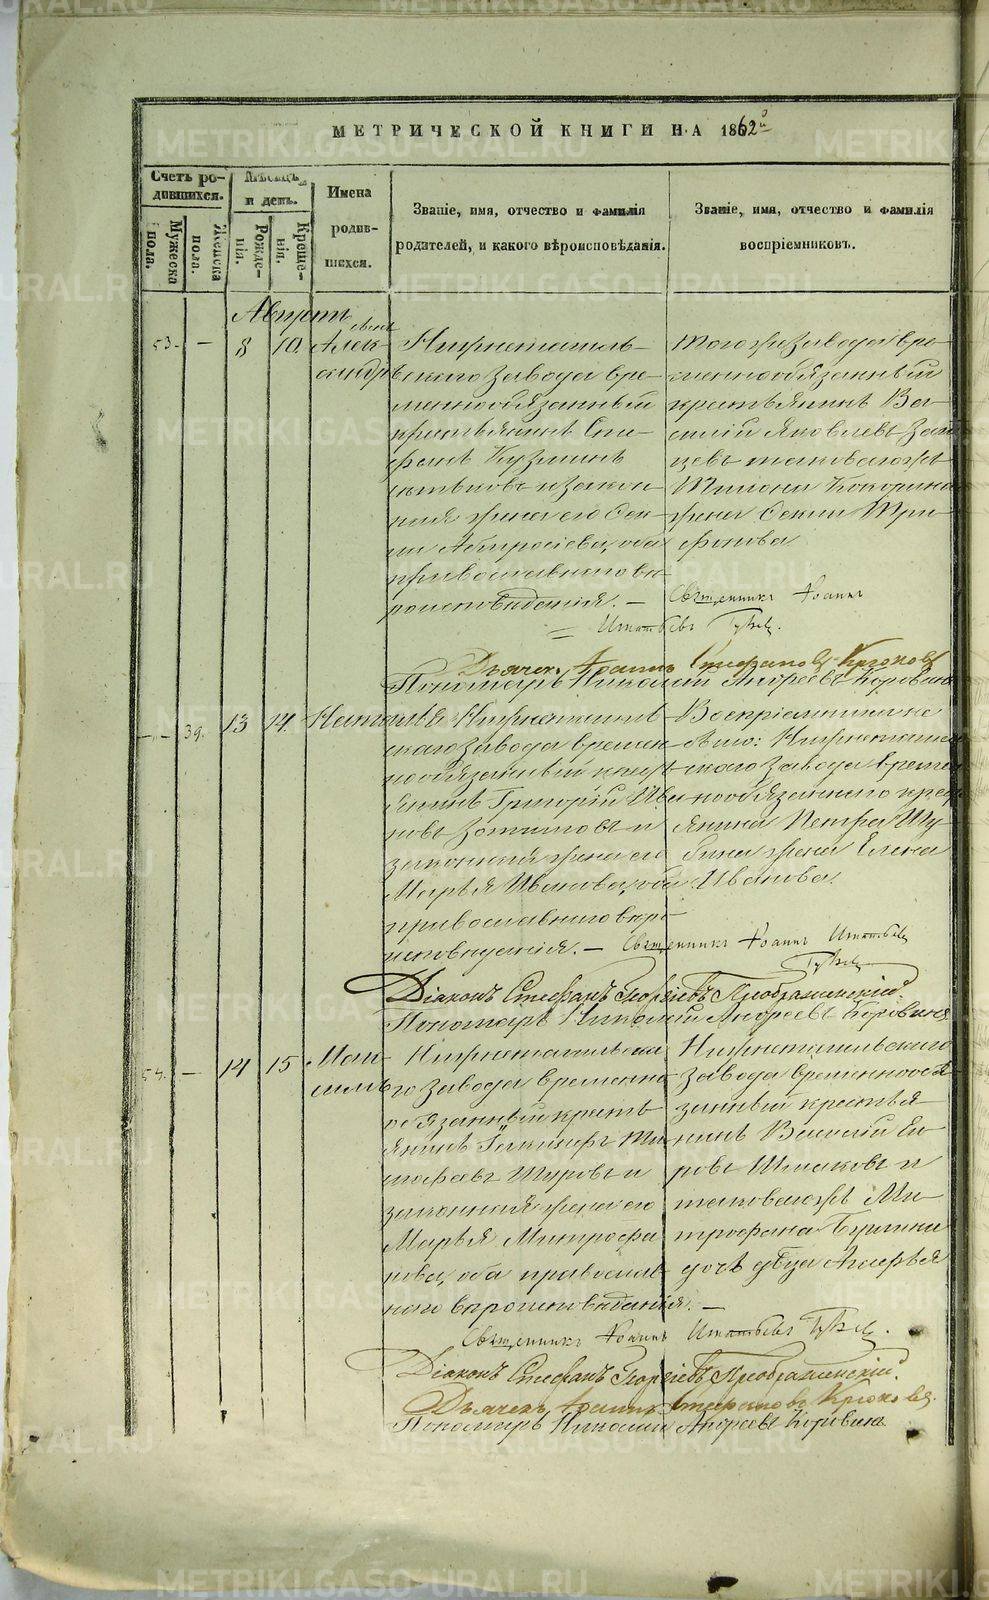 МЕТРИЧЕСКОЙ КНИГИ НА 1862й
Счетъ ро-
дившихся.
Мѣсяцъ
и день.
Имена
родив-
шихся.
Званіе, имя, отчество и фамилія
родителей, и какого вѣроисповѣданія.
Званіе, имя, отчество и фамилія
воспріемниковъ.
Мужеска
пола.
Женска
пола.
Рожде-
нія.
Креще-
нія.
Августъ
53.
—
8
10.
Алек-
сандръ
Нижнетагиль-
скаго завода вре-
меннообязанный
крестьянинъ Сте-
фанъ Кузминъ
и закон-
ная жена его
оба
православнаго вѣ-
роисповѣданія. —
Того же завода вре-
меннообязанный
крестьянинъ Ва-
силій Яковлевъ
таковагожъ
жена Три-
фонова
Священникъ Іоаннъ
Игнатьевъ
Дьячекъ Іоаннъ Стефановъ Крюковъ
Пономарь Николай Андреевъ Коровинъ
—
39.
13
14.
Наталья
Нижнетагиль-
скаго завода времен-
нообязанный кресть-
янинъ Григорій Ива-
новъ и
законная жена его
Марья Иванова, оба
православнаго вѣро-
исповѣданія. —
Воспріемника не
было: Нижнетагиль-
скаго завода времен-
нообязаннаго кресть-
янина Петра
жена Елена
Иванова.
Священникъ Іоаннъ Игнатьевъ
Діаконъ Стефанъ Георгіевъ Преображенскій.
Пономарь Николай Андреевъ Коровинъ
54.
—
14
15
Мак-
симъ
Нижнетагильска-
го завода временно-
обязанный кресть-
янинъ
и
законная жена его
Марья Митрофа-
нова, оба православ-
наго вѣроисповѣданія. —
Нижнетагильскаго
завода временнообя-
занный крестья-
нинъ Василій
и
таковагожъ Ми-
трофана
дочь дѣвица
Священникъ Іоаннъ Игнатьевъ
Діаконъ Стефанъ Георгіевъ Преображенскій.
Дьячекъ Іоаннъ Стефановъ Крюковъ
Пономарь Николай Андреевъ Коровинъ
METRIKI.GASO-URAL.RU